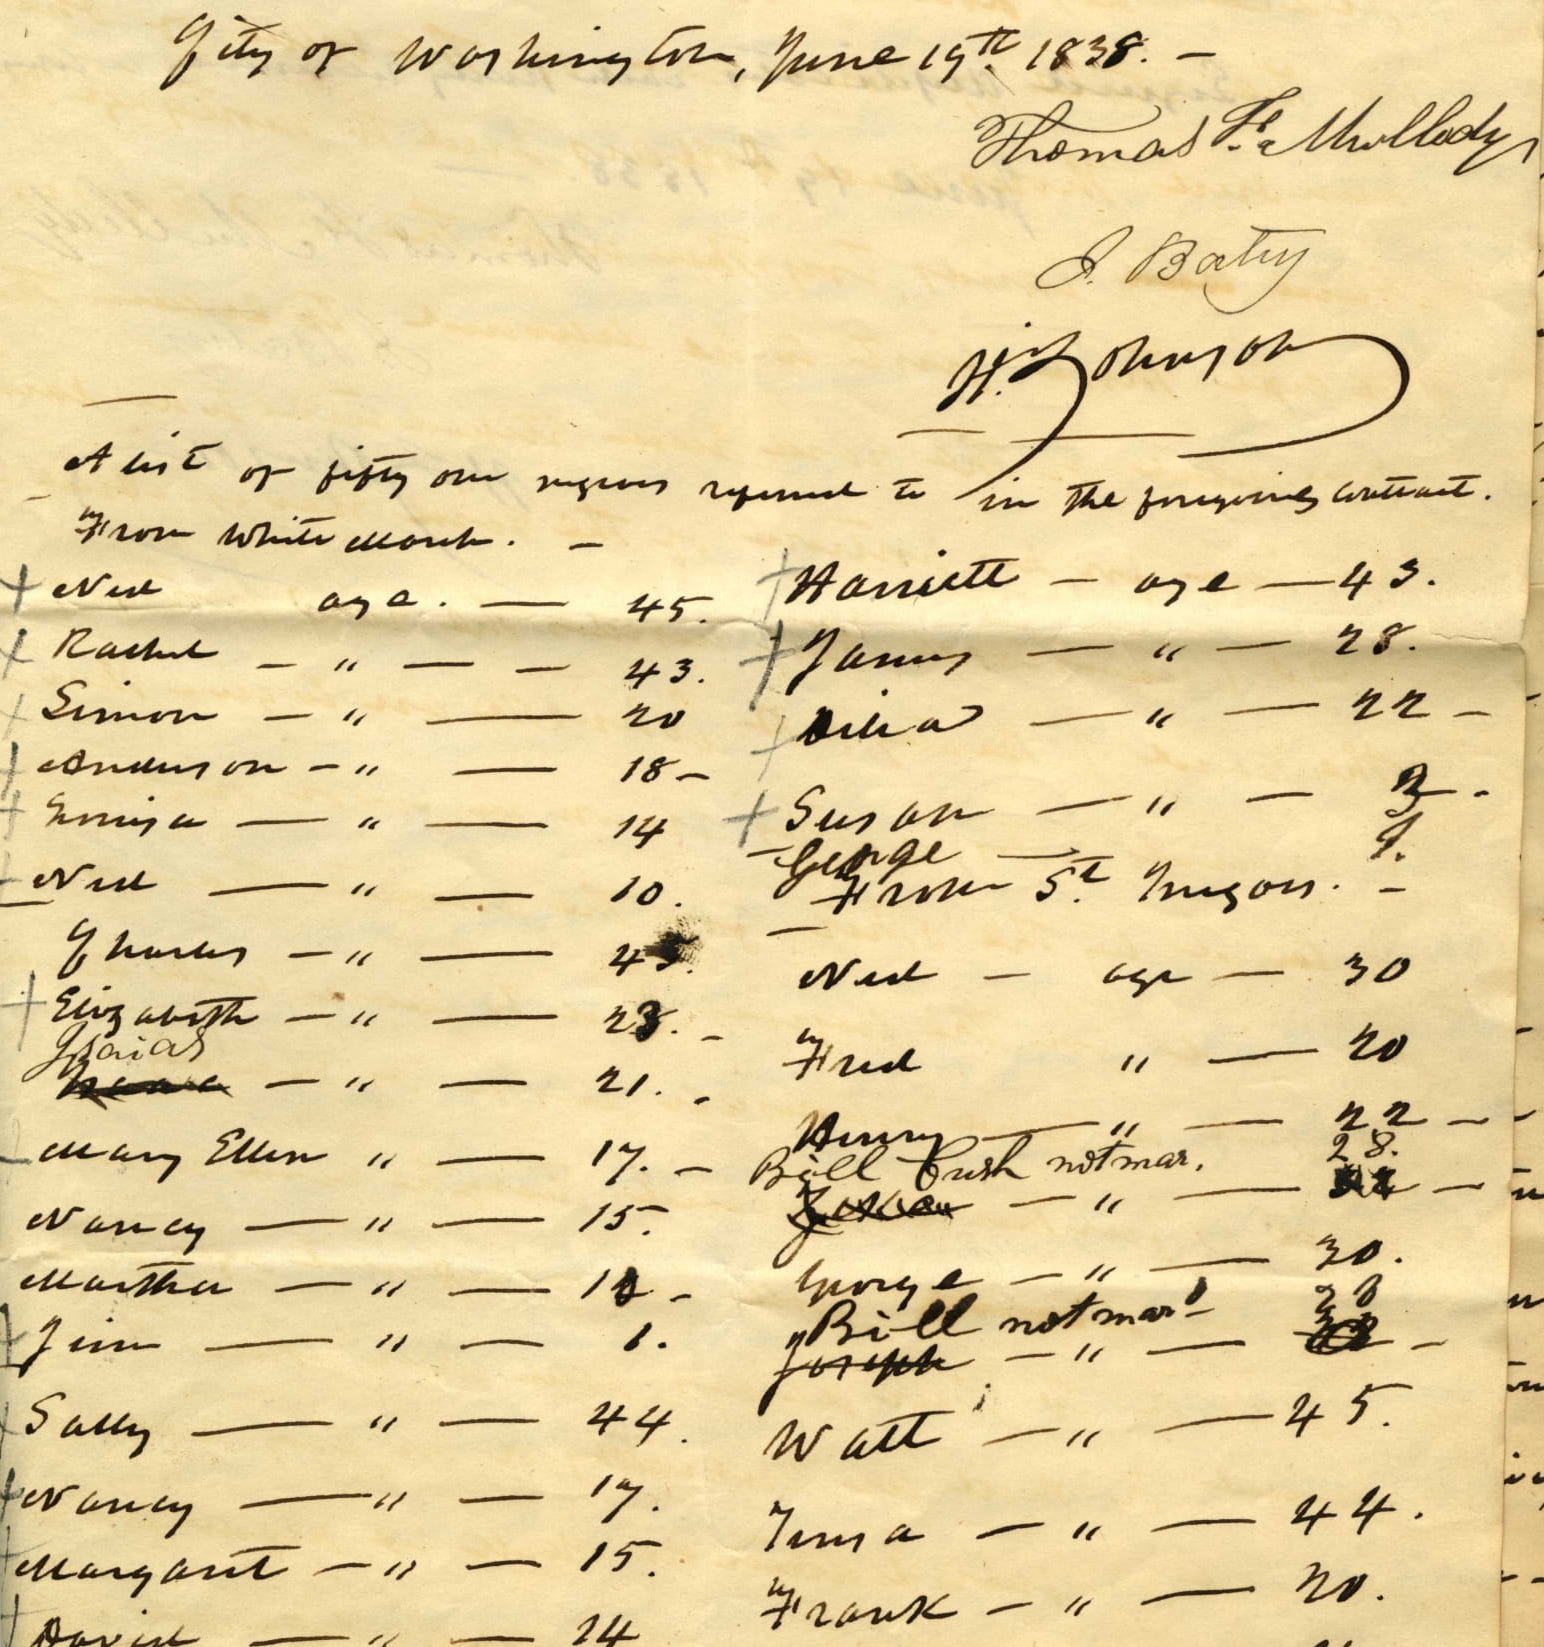 City of Washington, June 19th 1838. —
Thomas F. Mulledy
J. Batey
H. Johnson
A list of fifty one negroes referred to in the foregoing contract.
From White Marsh. —
+ Ned age. — 45.
+ Rachel — " — — 43.
+ Simon — " — 20
+ Anderson — " — 18 —
+ Louisa — " — 14
+ Ned — " — 10.
Charles — " — 45.
+ Elizabeth — " — 23. —
Isaias
Isaac — " — 21. —
Mary Ellen " — 17. —
Nancy — " — 15.
Martha — " — 10 —
+ Jim — " — 1.
+ Sally — " — 44.
+ Nancy — " — 17.
+ Margaret — " — 15.
+ David — " — 14
+ Harriett — age — 43.
+ James — " — 28.
+ Delia — " — 22 —
+ Susan — " — 2 —
— George — 1.
From St. Inigoes. —
Ned — age — 30
Fred " — 20
Henry — " — 22 —
Bill Cush not mar. 28.
— " — —
George — " — 30.
Bill not mard — 20
Joseph — " — —
Watt — " — 45.
Teresa — " — 44.
Frank — " — 20.